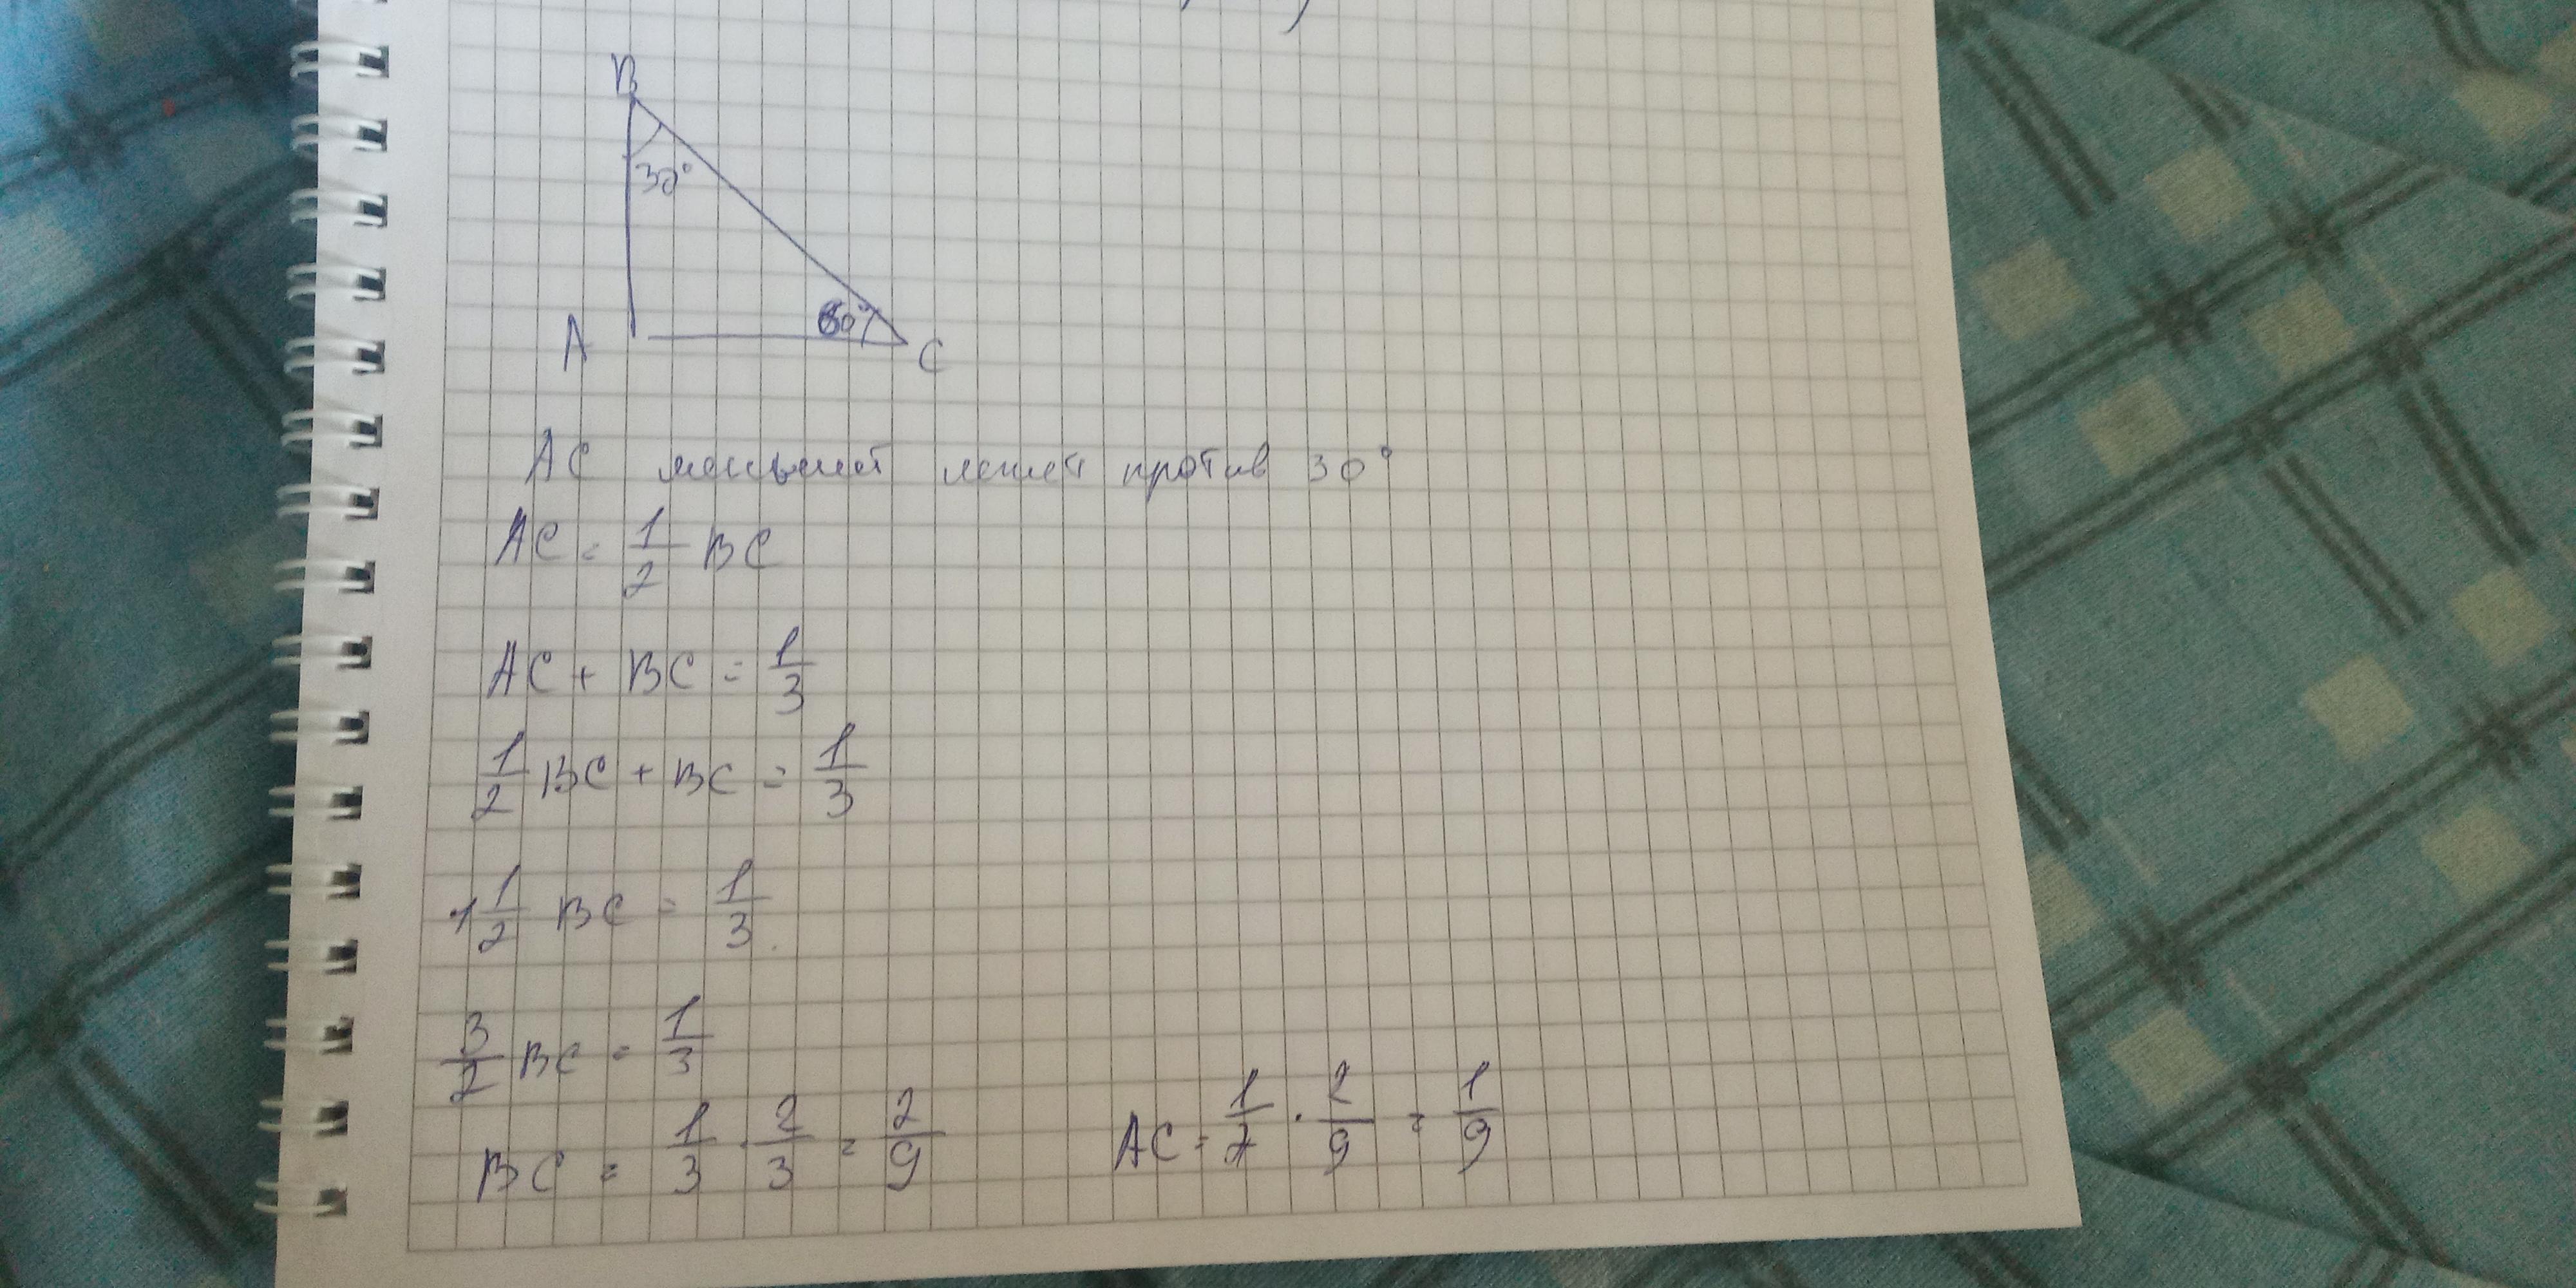 B
30°
60°
A
C
AC меньший лежит против 30°
AC = 1/2 BC
AC + BC = 1/3
1/2 BC + BC = 1/3
1 1/2 BC = 1/3.
3/2 BC = 1/3
BC = 1/3 · 2/3 = 2/9
AC = 1/2 · 2/9 = 1/9